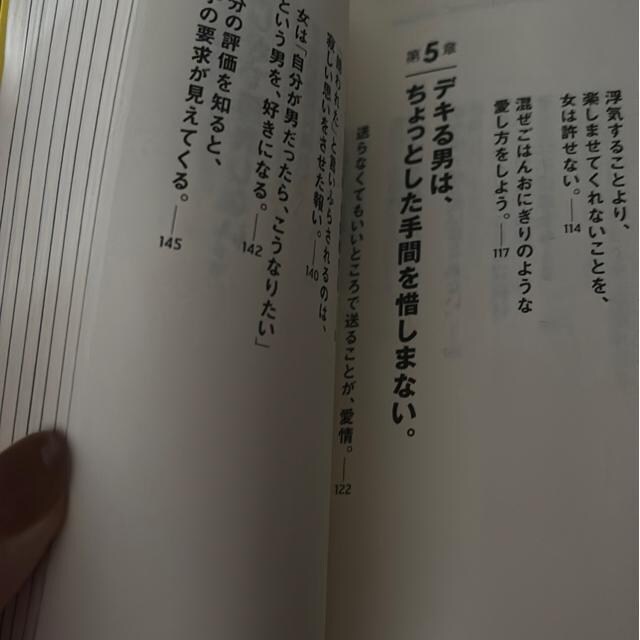 浮気することより、
楽しませてくれないことを、
女は許せない。――114
混ぜごはんおにぎりのような
愛し方をしよう。――117
第5章
デキる男は、
ちょっとした手間を惜しまない。
送らなくてもいいところで送ることが、愛情。――122
と言いふらされるのは、
寂しい思いをさせた報い。――140
女は「自分が男だったら、こうなりたい」
という男を、好きになる。――142
分の評価を知ると、
の要求が見えてくる。――145